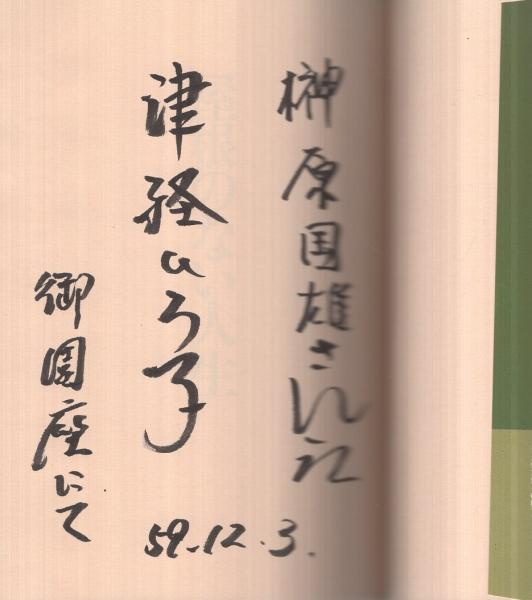 榊原国雄さんへ
津軽ひろ子
御園座にて
59.12.3.